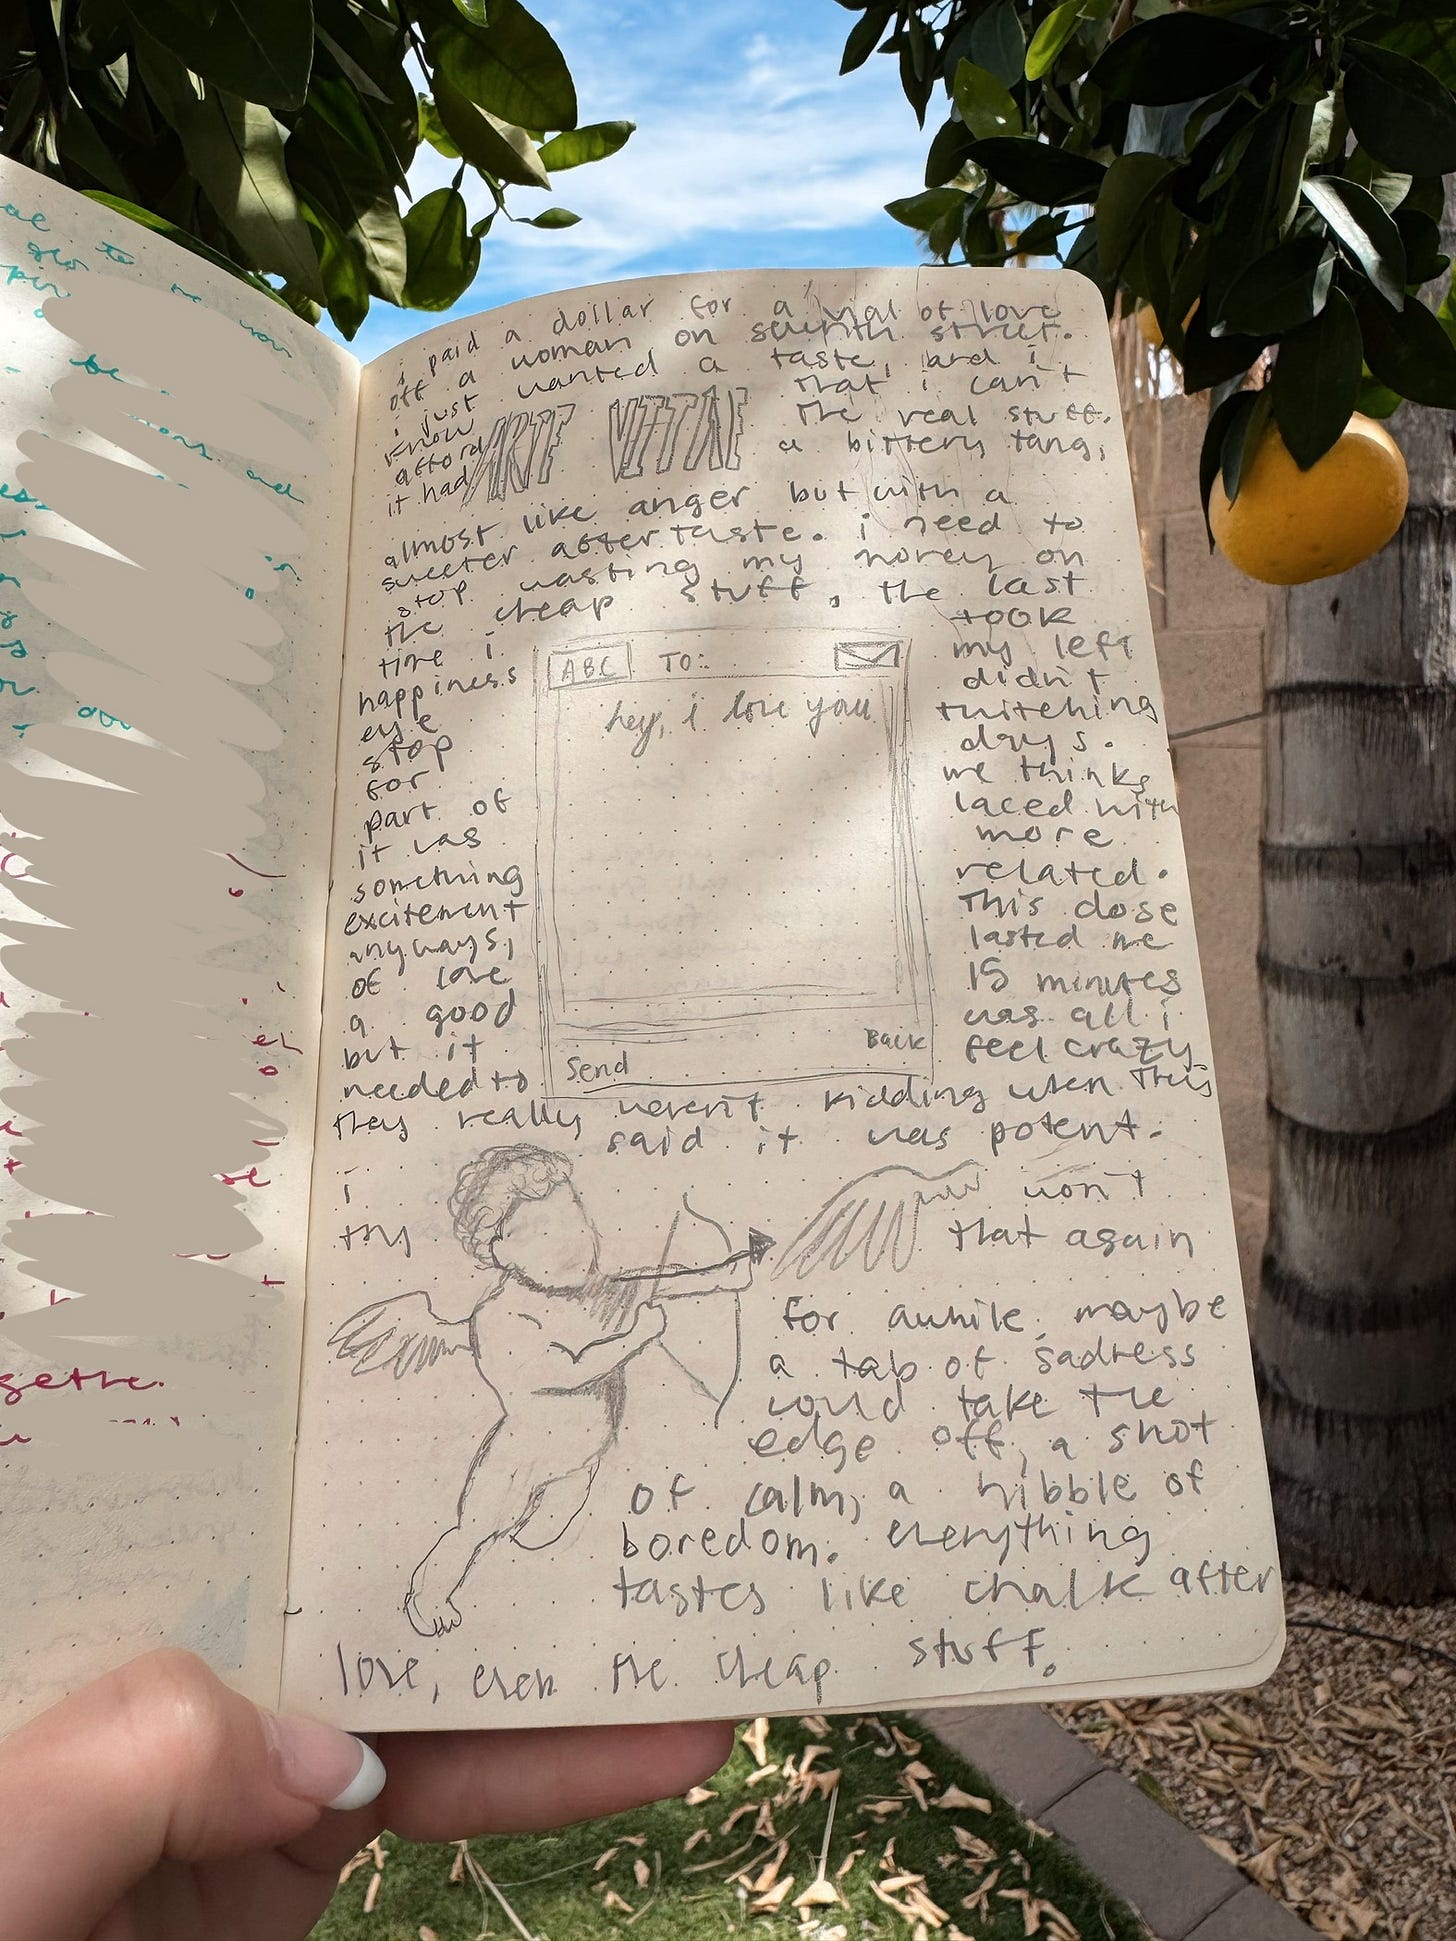 i paid a dollar for a vial of love
off a woman on seventh street.
i just wanted a taste, and i
know that i can't
afford the real stuff.
VITAE
it had a bittery tang,
almost like anger but with a
sweeter aftertaste. i need to
stop wasting my money on
the cheap stuff, the last
time i took
happiness my left
eye didn't
stop twitching
for days.
part of me thinks
it was laced with
something more
excitement related.
anyways, This dose
of love lasted me
a good 15 minutes
but it was all i
needed to feel crazy,
they really weren't kidding when they
said it was potent.
ABC TO:
hey, i love you
Send Back
i won't
try that again
for awhile, maybe
a tab of sadness
would take the
edge off, a shot
of calm, a nibble of
boredom. everything
tastes like chalk after
love, even the cheap stuff.